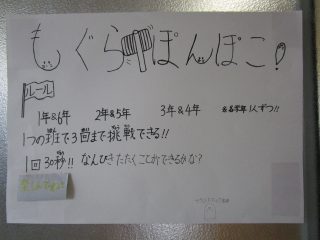 もぐらぽんぽこ!
ルール
1年&6年 2年&5年 3年&4年 ※各学年1人ずつ!!
1つの班で3回まで挑戦できる!!
1回30秒!! なんびきたたくことができるかな?